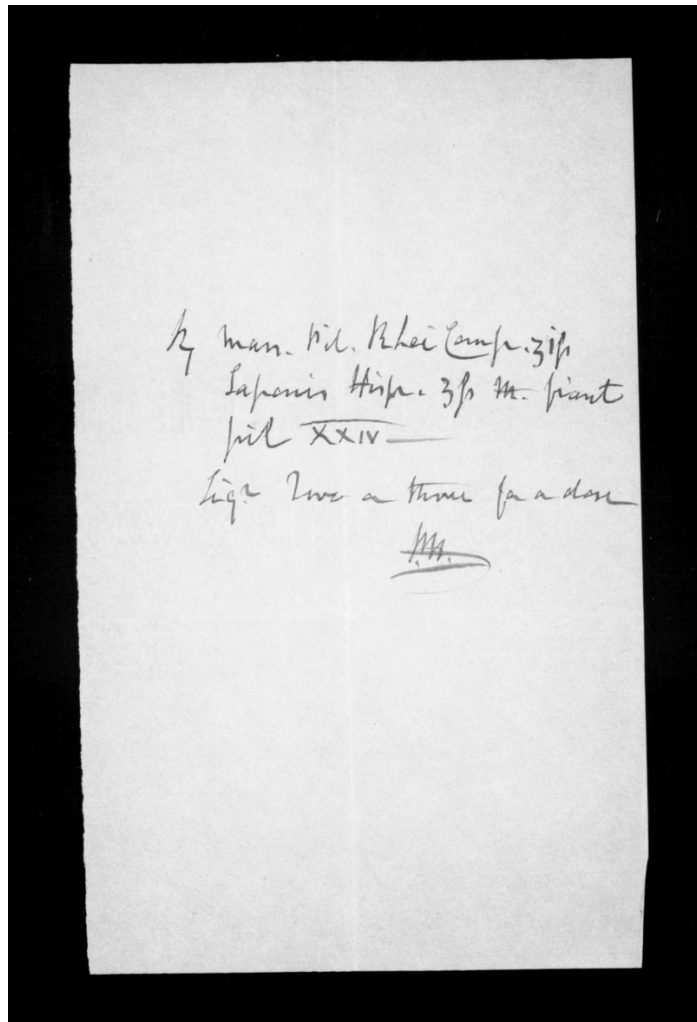 ℞ Mass. Pil. Rhei Comp. ʒifs
Saponis Hisp. ʒfs M. fiant
pil XXIV
Sigr. Two or three for a dose